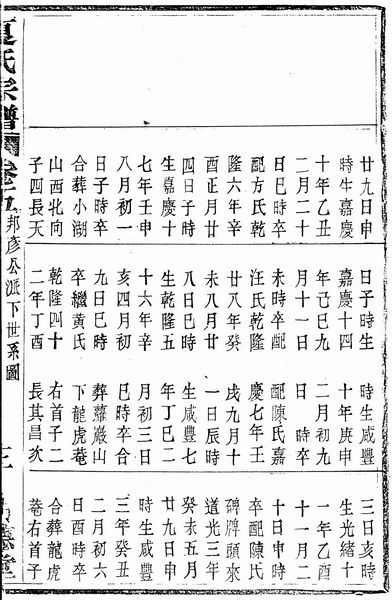 廿九日申
時生嘉慶
十年乙丑
二月二十
日巳時卒
配方氏乾
隆六年辛
酉正月廿
四日子時
生嘉慶十
七年壬申
八月初一
日子時卒
合葬小湖
山西北向
子四長天
日子時生
嘉慶十四
年己巳九
月十一日
未時卒配
汪氏乾隆
廿八年癸
未八月廿
八日巳時
生乾隆五
十六年辛
亥四月初
九日巳時
卒繼黄氏
乾隆四十
二年丁酉
時生咸豐
十年庚申
二月初九
日　時卒
配陳氏嘉
慶七年壬
戌九月十
一日辰時
生咸豐七
年丁巳二
月初三日
巳時卒合
葬蘿巖山
下龍虎菴
右首子二
長其昌次
三日亥時
生光緒十
一年乙酉
十一月二
十日申時
卒配陳氏
碑牌頭來
道光三年
癸未五月
廿九日申
時生咸豐
三年癸丑
二月初六
日酉時卒
合葬龍虎
菴右首子
氏宗譜
邦彥公派下世系圖
堂